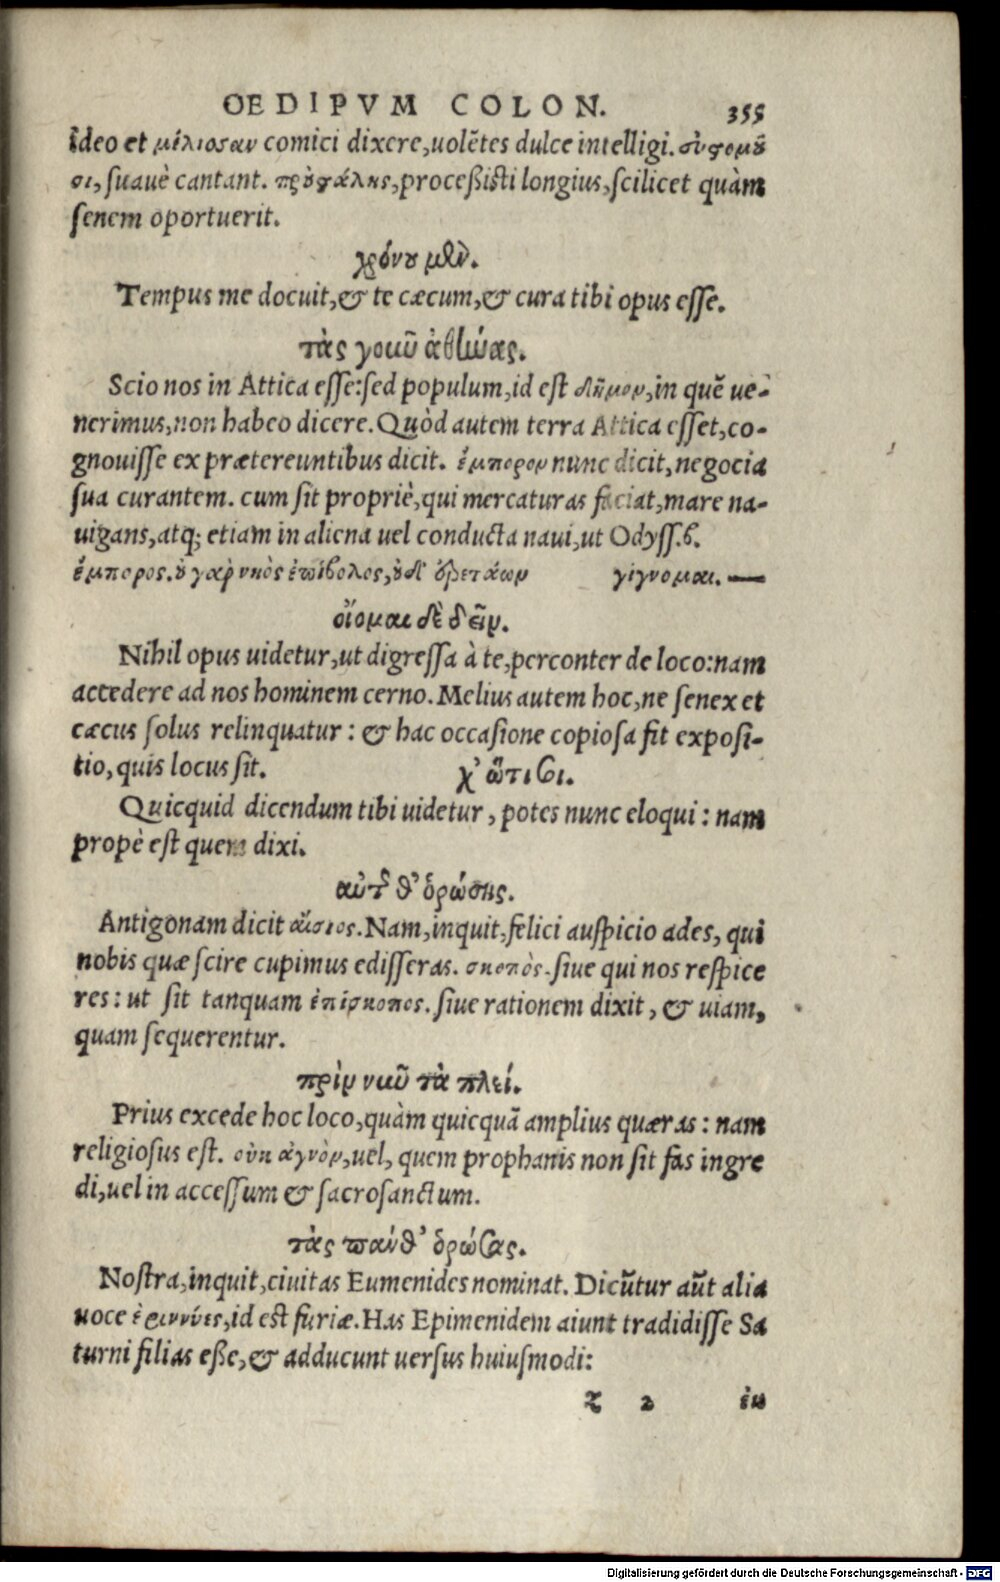 OEDIPVM COLON. 355
ideo et μέλιοσαν comici dixere, uolẽtes dulce intelligi. σύφομȣ͂
σι, suauè cantant. πρȣ̓φάλης, proceßisti longius, scilicet quàm
senem oportuerit.
χρόνȣ μὲν.
Tempus me docuit, & te cæcum, & cura tibi opus esse.
τὰς γοιιῦ ἀθήνας.
Scio nos in Attica esse: sed populum, id est δῆμον, in quẽ ue-
nerimus, non habeo dicere. Quòd autem terra Attica esset, co-
gnouisse ex prætereuntibus dicit. ἔμπορον nunc dicit, negocia
sua curantem. cum sit propriè, qui mercaturas faciat, mare na-
uigans, atq; etiam in aliena uel conducta naui, ut Odyss.β.
ἔμπορος. ȣ̓ γὰρ νηὸς ἐπήβολος, ȣ̓δ' ἐρετάων γίγνομαι. —
οἴομαι δὲ δεῖν.
Nihil opus uidetur, ut digressa à te, perconter de loco: nam
accedere ad nos hominem cerno. Melius autem hoc, ne senex et
cæcus solus relinquatur: & hac occasione copiosa fit exposi-
tio, quis locus sit. χ' ὥτι σοι.
Quicquid dicendum tibi uidetur, potes nunc eloqui: nam
propè est quem dixi.
αὐτῆς θ' ὁρώσης.
Antigonam dicit αἴσιος. Nam, inquit, felici auspicio ades, qui
nobis quæ scire cupimus edisseras. σκοπὸς. siue qui nos respice
res: ut sit tanquam ἐπίσκοπος. siue rationem dixit, & uiam,
quam sequerentur.
πρὶν νιῦ τὰ πλεί.
Prius excede hoc loco, quàm quicquã amplius quæras: nam
religiosus est. οὐκ ἁγνὸν, uel, quem prophanis non sit fas ingre
di, uel in accessum & sacrosanctum.
τὰς πανθ' ὁρώσας.
Nostra, inquit, ciuitas Eumenides nominat. Dicũtur aũt alia
uoce ἐριννύες, id est furiæ. Has Epimenidem aiunt tradidisse Sa
turni filias eße, & adducunt uersus huiusmodi:
z 2 ἐκ
Digitalisierung gefördert durch die Deutsche Forschungsgemeinschaft - DFG